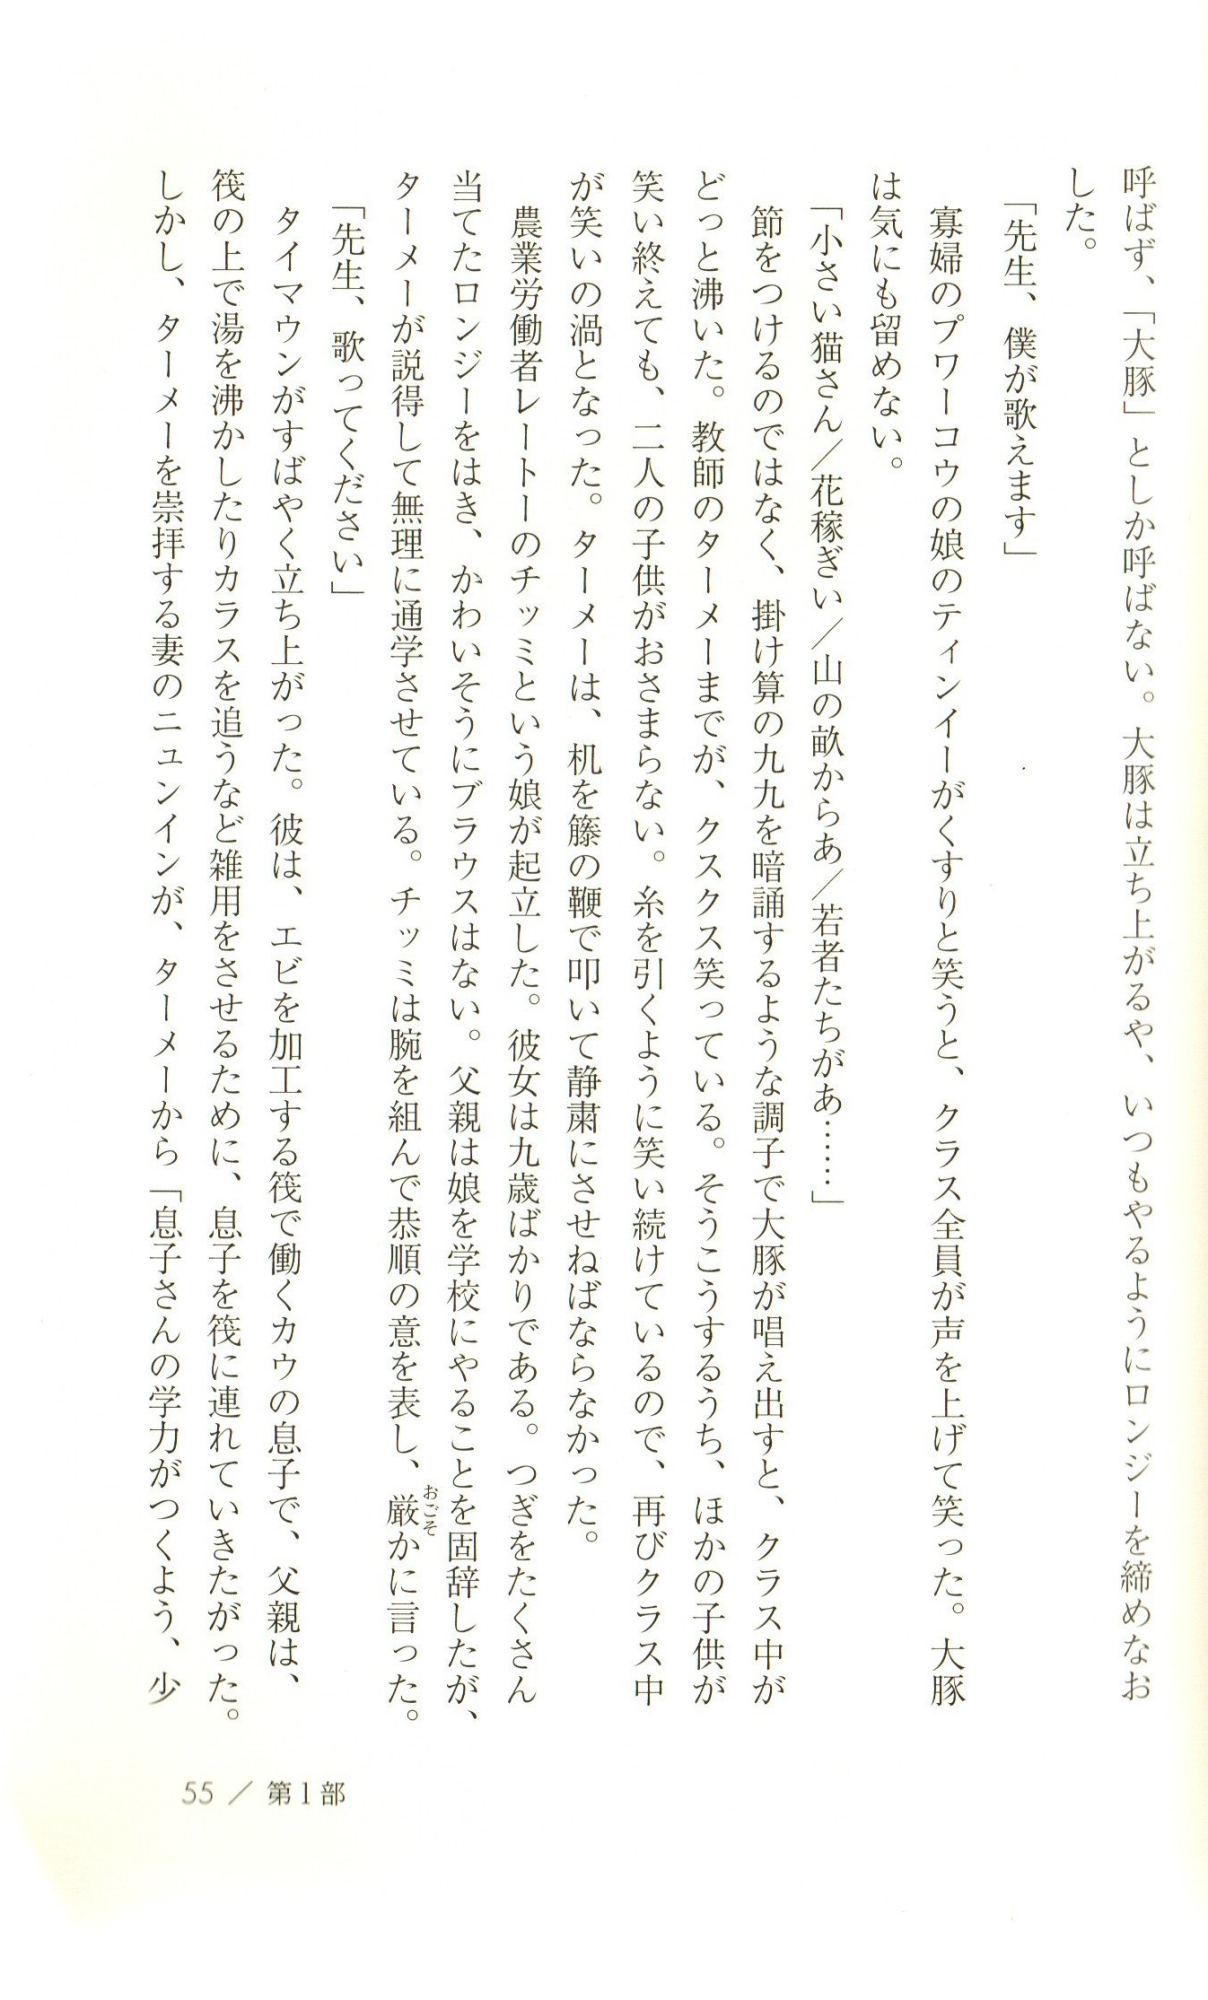 呼ばず、「大豚」としか呼ばない。大豚は立ち上がるや、いつもやるようにロンジーを締めなお
した。
「先生、僕が歌えます」
寡婦のプワーコウの娘のティンイーがくすりと笑うと、クラス全員が声を上げて笑った。大豚
は気にも留めない。
「小さい猫さん／花稼ぎい／山の畝からあ／若者たちがあ……」
節をつけるのではなく、掛け算の九九を暗誦するような調子で大豚が唱え出すと、クラス中が
どっと沸いた。教師のターメーまでが、クスクス笑っている。そうこうするうち、ほかの子供が
笑い終えても、二人の子供がおさまらない。糸を引くように笑い続けているので、再びクラス中
が笑いの渦となった。ターメーは、机を籐の鞭で叩いて静粛にさせねばならなかった。
農業労働者レートーのチッミという娘が起立した。彼女は九歳ばかりである。つぎをたくさん
当てたロンジーをはき、かわいそうにブラウスはない。父親は娘を学校にやることを固辞したが、
ターメーが説得して無理に通学させている。チッミは腕を組んで恭順の意を表し、厳かに言った。
おごそ
「先生、歌ってください」
タイマウンがすばやく立ち上がった。彼は、エビを加工する筏で働くカウの息子で、父親は、
筏の上で湯を沸かしたりカラスを追うなど雑用をさせるために、息子を筏に連れていきたがった。
しかし、ターメーを崇拝する妻のニュンインが、ターメーから「息子さんの学力がつくよう、少
55／第1部